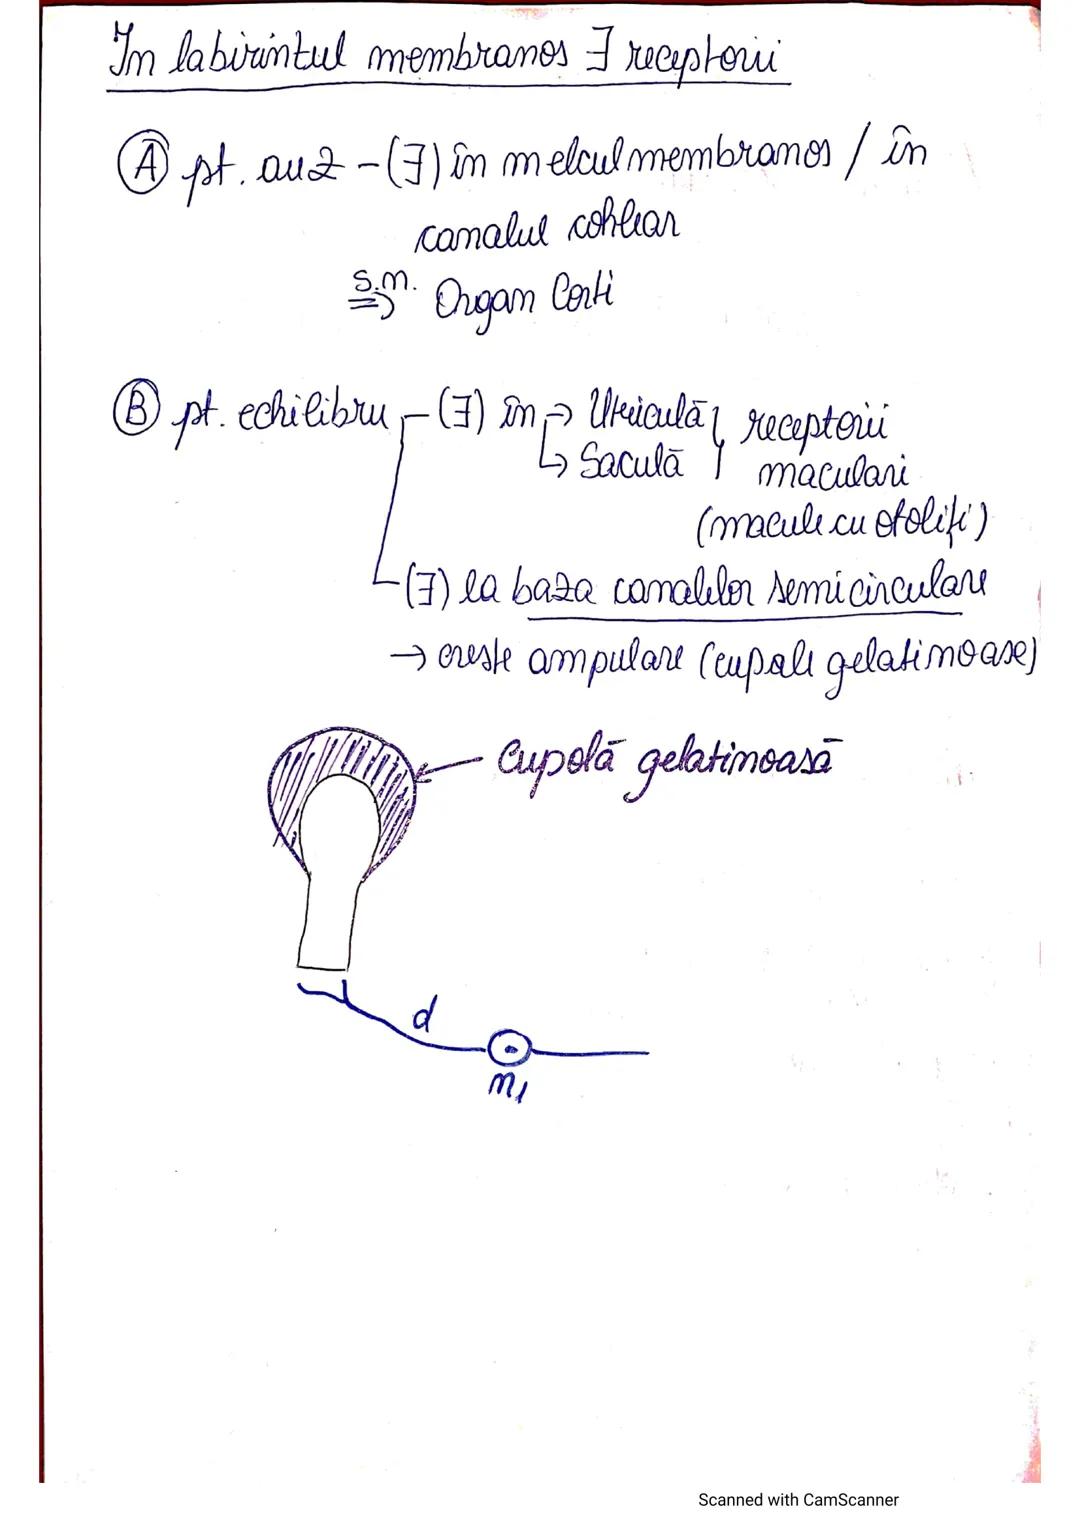 În labirintul membranos ∃ receptorii
Ⓐ pt. auz - (∃) în melcul membranos / în
canalul cohlear
s.m. ⇒ Organ Corti
Ⓑ pt. echilibru - (∃) în → Utriculă } receptorii
↳ Saculă } maculari
(macule cu otoliți)
- (∃) la baza canalelor semicirculare
→ creste ampulare (cupole gelatinoase)
Cupolă gelatinoasă
d
m₁
Scanned with CamScanner